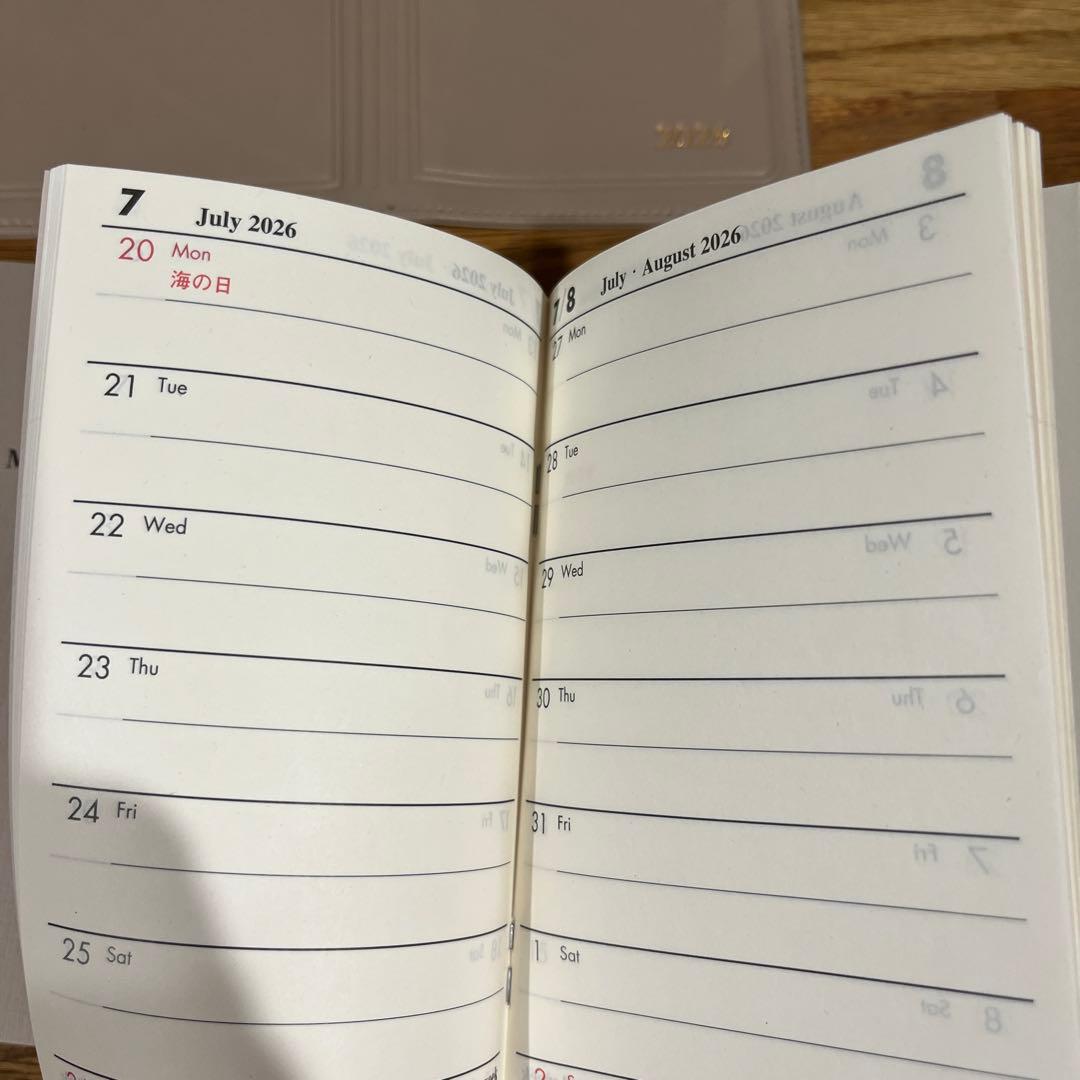 7 July 2026
20 Mon
海の日
21 Tue
22 Wed
23 Thu
24 Fri
25 Sat
7/8 July · August 2026
27 Mon
28 Tue
29 Wed
30 Thu
31 Fri
1 Sat